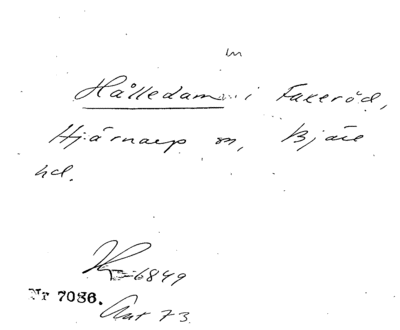 m
Hålledam i Faxeröd,
Hjärnarp sn, Bjäre
hd.
6849
Nr 7086.
Ant 73.